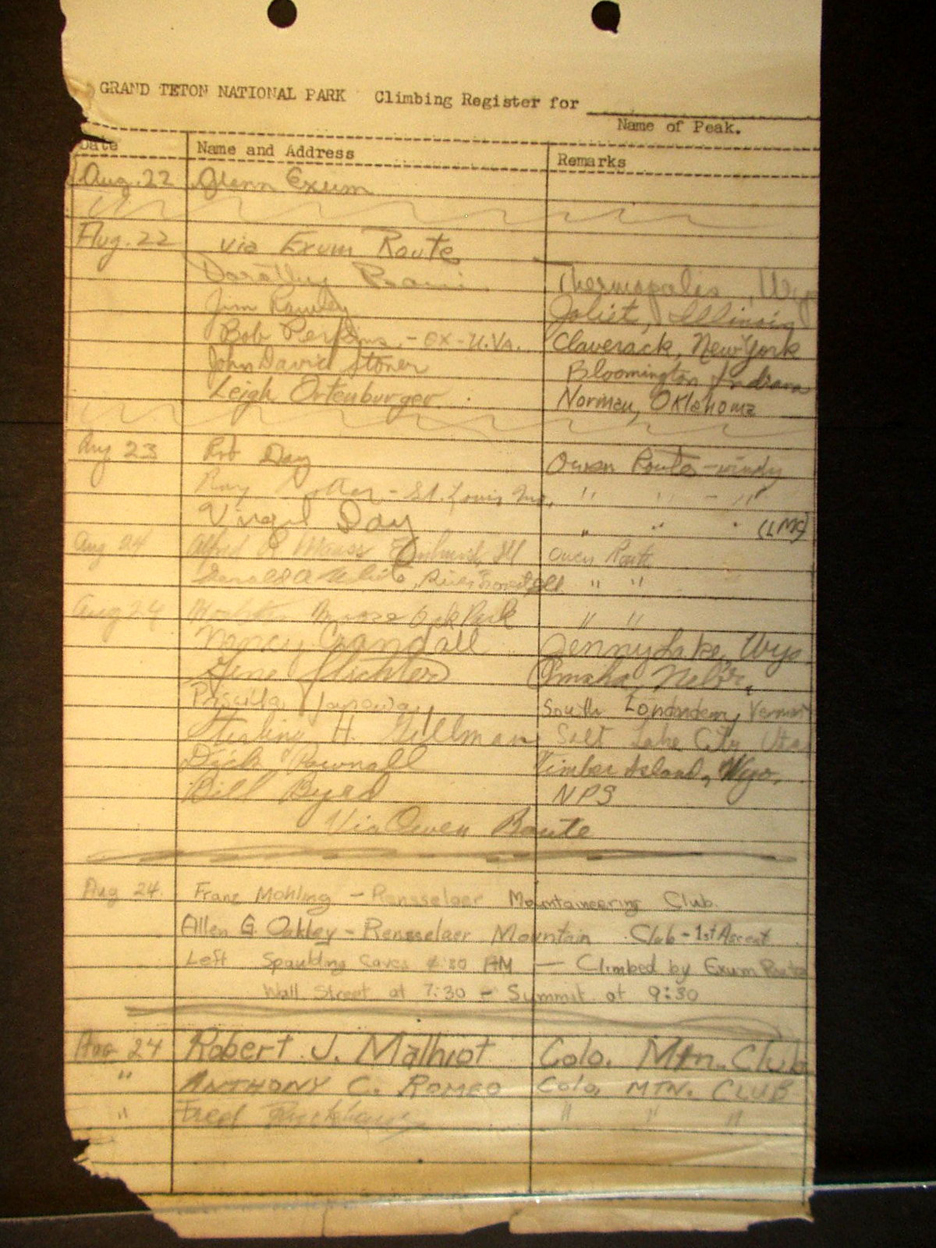 GRAND TETON NATIONAL PARK Climbing Register for
Name of Peak.
Date Name and Address Remarks
Aug. 22 Glenn Exum
Aug. 22 via Exum Route
Dorothy Thermopolis, Wyo
Jim Joliet, Illinois
Bob Perkins - ex-U.Va. Claverack, New York
John David Stoner Bloomington Indiana
Leigh Ortenburger Norman, Oklahoma
Aug 23 Rob Day Owen Route - windy
Ray - St. Louis Mo, " " - "
Virgil Day " " " (LMS)
Aug 24 Alfred Elmhurst, Ill Owen Route
Gerald A White, River Forest Ill. " "
Aug 24 Oak Park " "
Nancy Crandall Jenny Lake, Wyo
Gene Slichter Omaha, Nebr.
Priscilla South Londonderry, Vermont
Sterling H. Gillman Salt Lake City, Uta
Dick Pownall Timber Island, Wyo,
Bill Byrd NPS
Via Owen Route
Aug 24. Franz Mohling - Rensselaer Mountaineering Club.
Allen G. Oakley - Rensselaer Mountain Club - 1st Ascent
Left Spaulding Caves 4:30 AM — Climbed by Exum Route
Wall Street at 7:30 - Summit at 9:30
Aug 24 Robert J. Malhiot Colo. Mtn. Club
" ANTHONY C. ROMEO Colo, MTN. CLUB
" Fred " " "